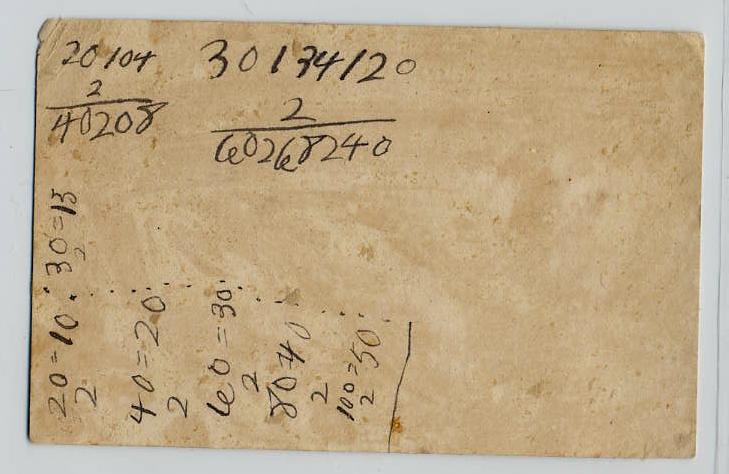 20104
2
40208
30134120
2
60268240
20=10 . 30=15
2 2
40=20
2
60=30
2
80=40
2
100=50
2